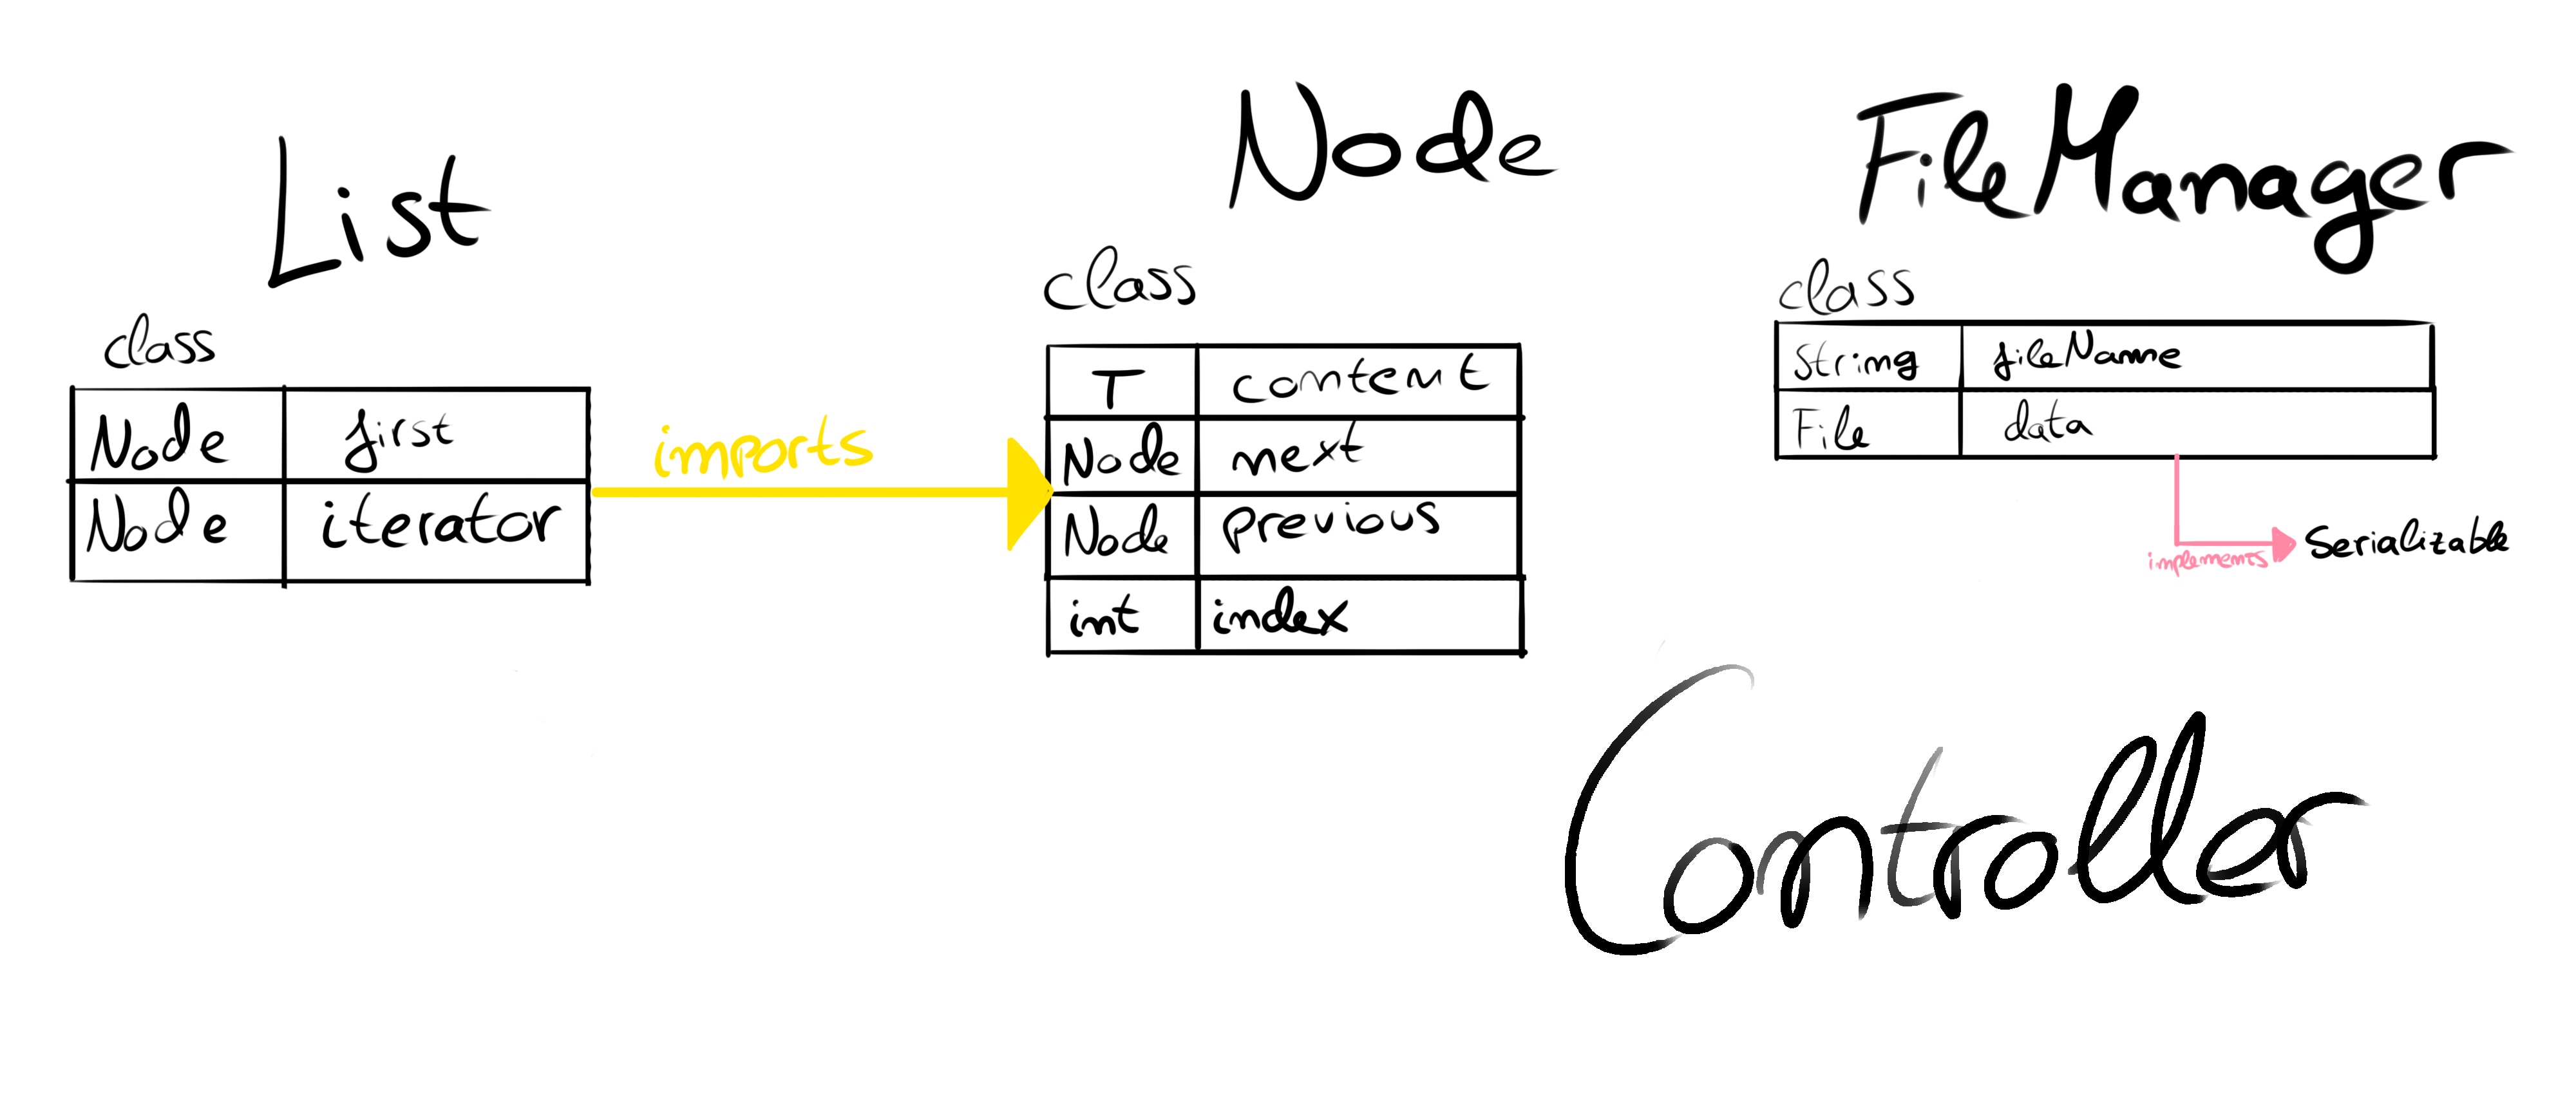 List
class
Node first
Node iterator
imports
Node
class
T content
Node next
Node previous
int index
FileManager
class
String fileName
File data
implements
Serializable
Controller